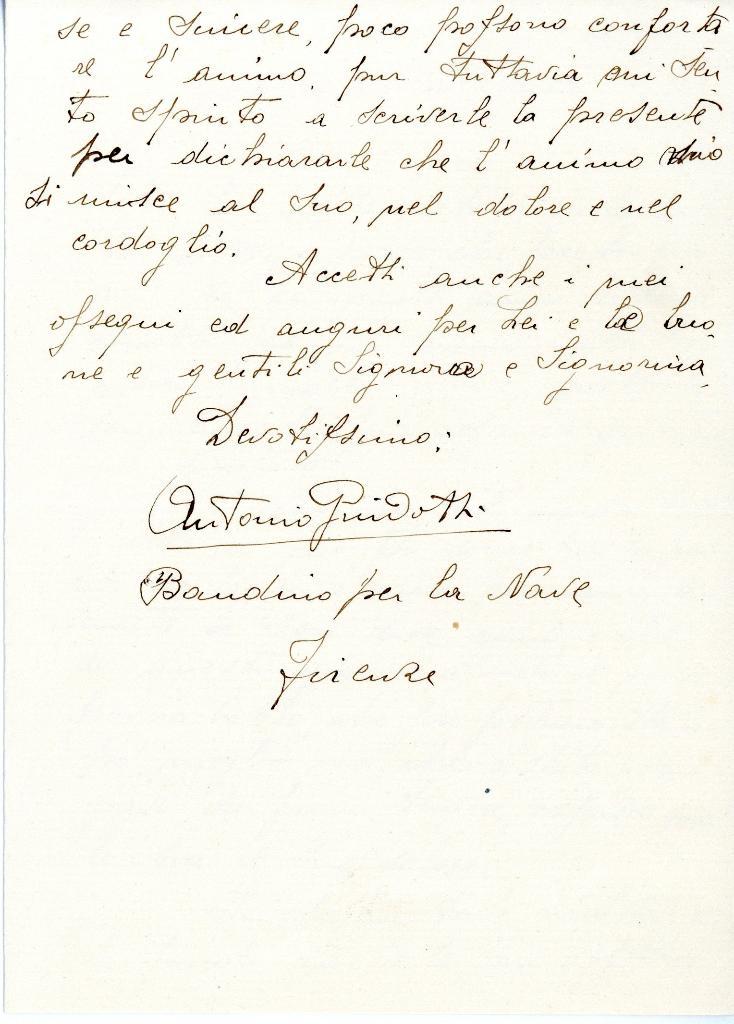 se e sincere, poco possono conforta
re l'animo, pur tuttavia mi sen
to spinto a scriverle la presente
per dichiararle che l'animo mio
si unisce al Suo, nel dolore e nel
cordoglio.
Accetti anche i miei
ossequi ed auguri per Lei e le buo,
ne e gentili Signora e Signorina,
Devotissimo:
Antonio Guidotti.
Bandino per la Nave
Firenze